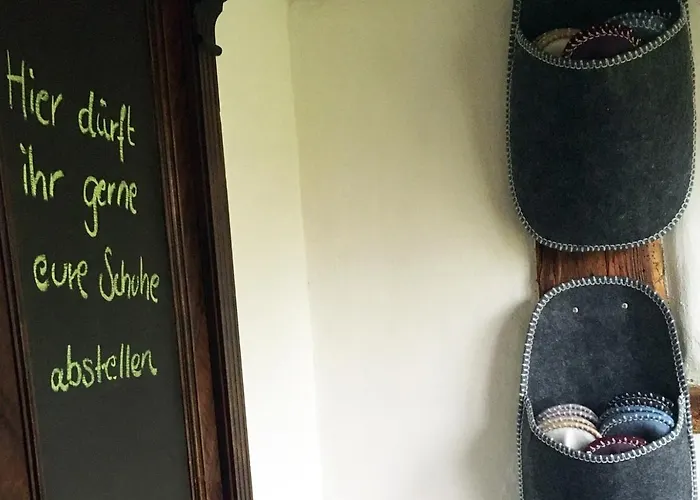 Hier dürft
ihr gerne
eure Schuhe
abstellen